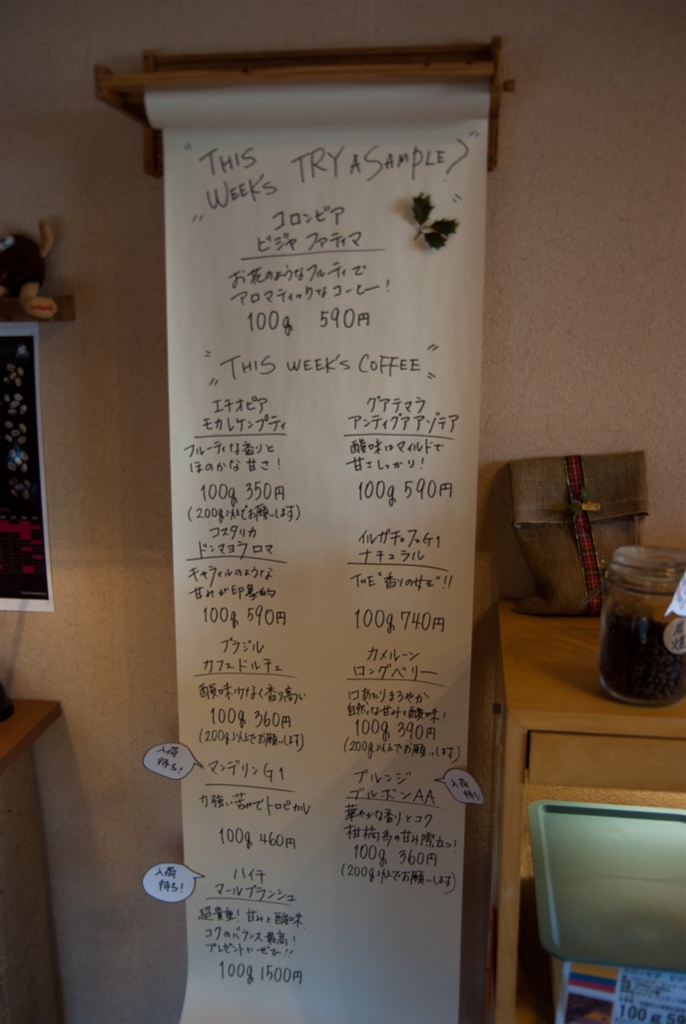 "THIS WEEK'S TRY A SAMPLE?"
コロンビア
ビジャ ファティマ
お花のようなフルーティで
アロマティックなコーヒー!
100g 590円
"THIS WEEK'S COFFEE"
エチオピア
モカレケンプティ
フルーティな香りと
ほのかな甘さ!
100g 350円
(200g以上でお願いします)
グアテマラ
アンティグアアゾテア
酸味はマイルドで
甘こしっかり!
100g 590円
コスタリカ
ドンマヨラロマ
キャラメルのような
甘みが印象的
100g 590円
イルガチェフェG1
ナチュラル
THE"香りの女王"!!
100g 740円
ブラジル
カフェドルチェ
酸味少なく香り高い
100g 360円
(200g以上でお願いします)
カメルーン
ロングベリー
口あたりまろやか
自然な甘みと酸味!
100g 390円
(200g以上でお願いします)
入荷
待ち!
マンデリンG1
力強い苦みでトロピカル
100g 460円
ブルンジ
ブルボンAA
入荷
待ち
華やかな香りとコク
柑橘系の甘み際立つ!
100g 360円
(200g以上でお願いします)
入荷
待ち!
ハイチ
マールブランシュ
超貴重!甘みと酸味、
コクのバランス最高!
プレゼントにぜひ!!
100g 1500円
コロンビア
100g 59